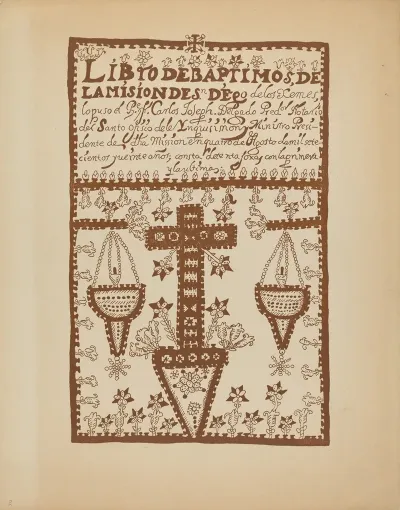 LIBTO DE BAPTIMOS, DE
LA MISION DE Sn. DEGo de los Xemes,
lo puso el Pe. ff. Carlos Joseph. Delgado Predor. Notario
del Santo Ofisio dela Ynquisision, y Ministro Presi-
dente de dha Mision en quatro de Agosto de mil sete
cientos y veinte años, consta de fojas con la primera
y la ultima;